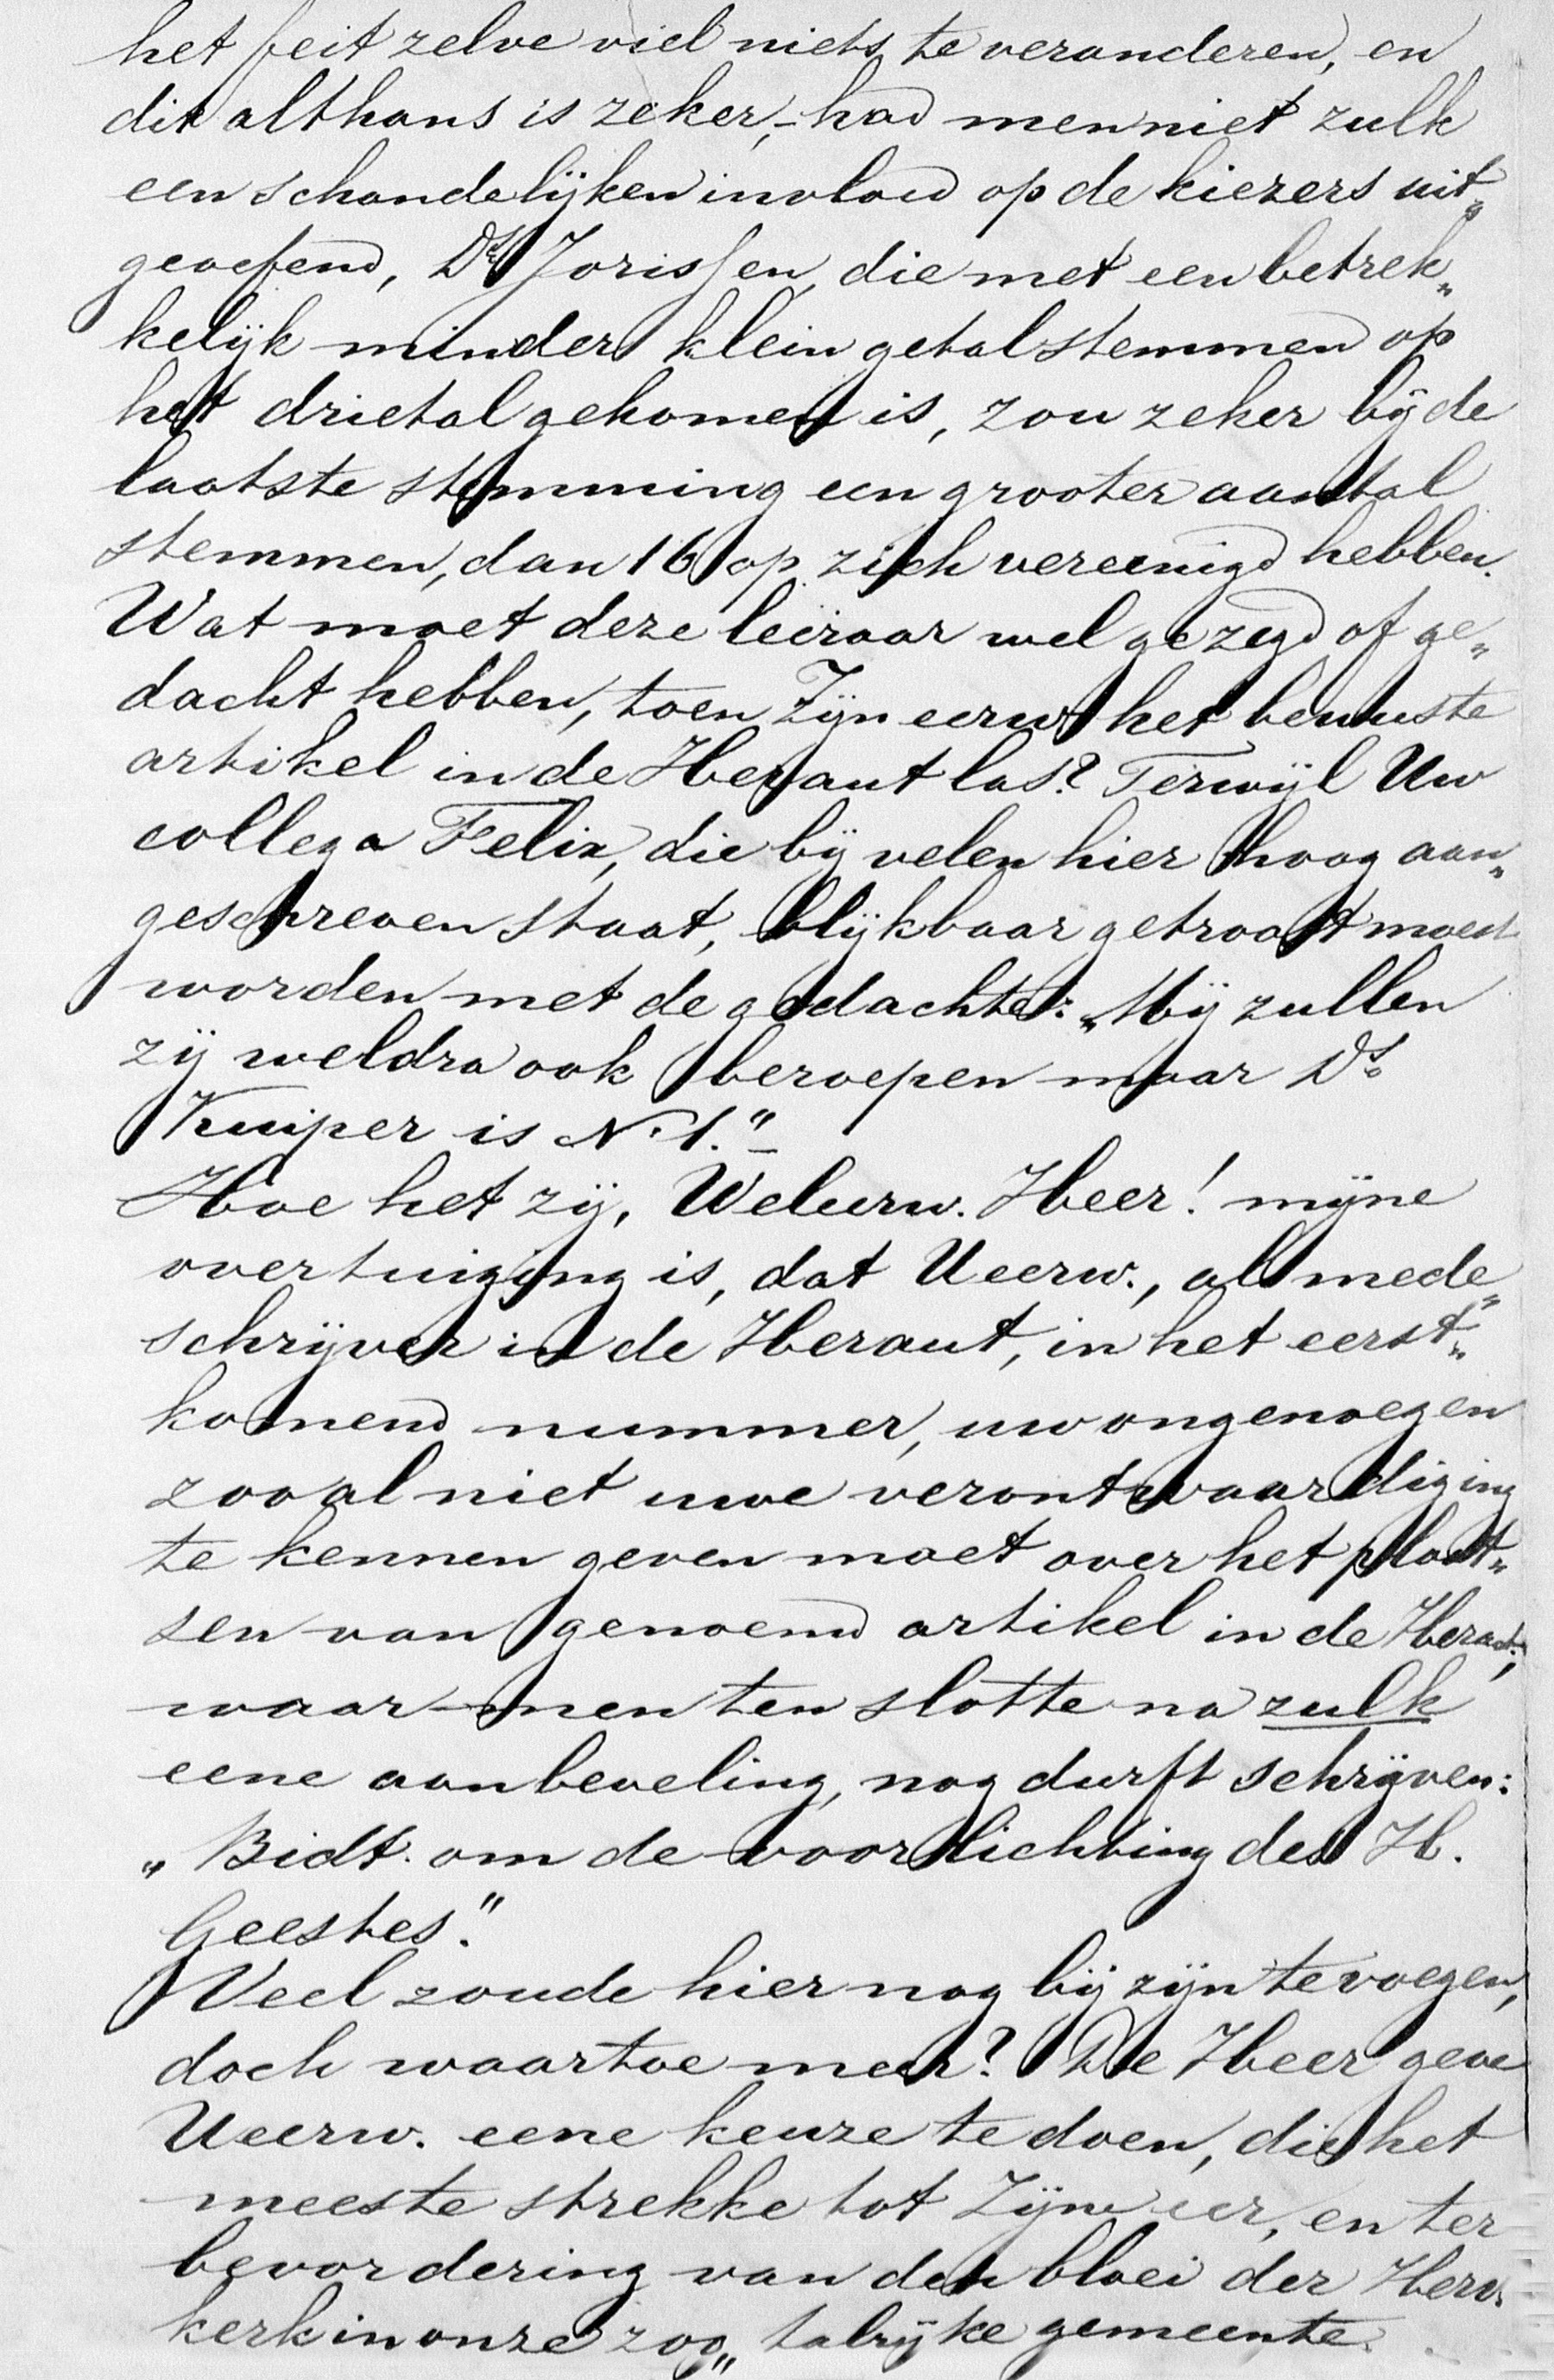 het feit zelve viel niets te veranderen, en
dit althans is zeker, - had men niet zulk
een schandelijken invloed op de kiezers uit„
geoefend, Ds. Jorissen, die met een betrek„
kelijk minder klein getal stemmen op
het drietal gekomen is, zou zeker bij de
laatste stemming een grooter aantal
stemmen, dan 16 op zich vereenigd hebben.
Wat moet deze leeraar wel gezegd of ge„
dacht hebben, toen Zijn eerw. het bewuste
artikel in de Heraut las? Terwijl Uw
collega Felix, die bij velen hier hoog aan„
geschreven staat, blijkbaar getroost moest
worden met de gedachte: „Mij zullen
zij weldra ook beroepen maar Ds.
Kuiper is No. 1." -
Hoe het zij, Weleerw. Heer! mijne
overtuiging is, dat Ueerw., als mede„
schrijver in de Heraut, in het eerst„
komend nummer, uw ongenoegen
zoo al niet uwe verontwaardiging
te kennen geven moet over het plaat„
sen van genoemd artikel in de Heraut,
waar men ten slotte na zulk
eene aanbeveling, nog durft schrijven:
„Bidt om de voorlichting des H.
Geestes."
Veel zoude hier nog bij zijn te voegen,
doch waartoe meer? De Heer geve
Ueerw. eene keuze te doen, die het
meeste strekke tot Zijne eer, en ter
bevordering van den bloei der Herv.
kerk in onze zoo„ talrijke gemeente.